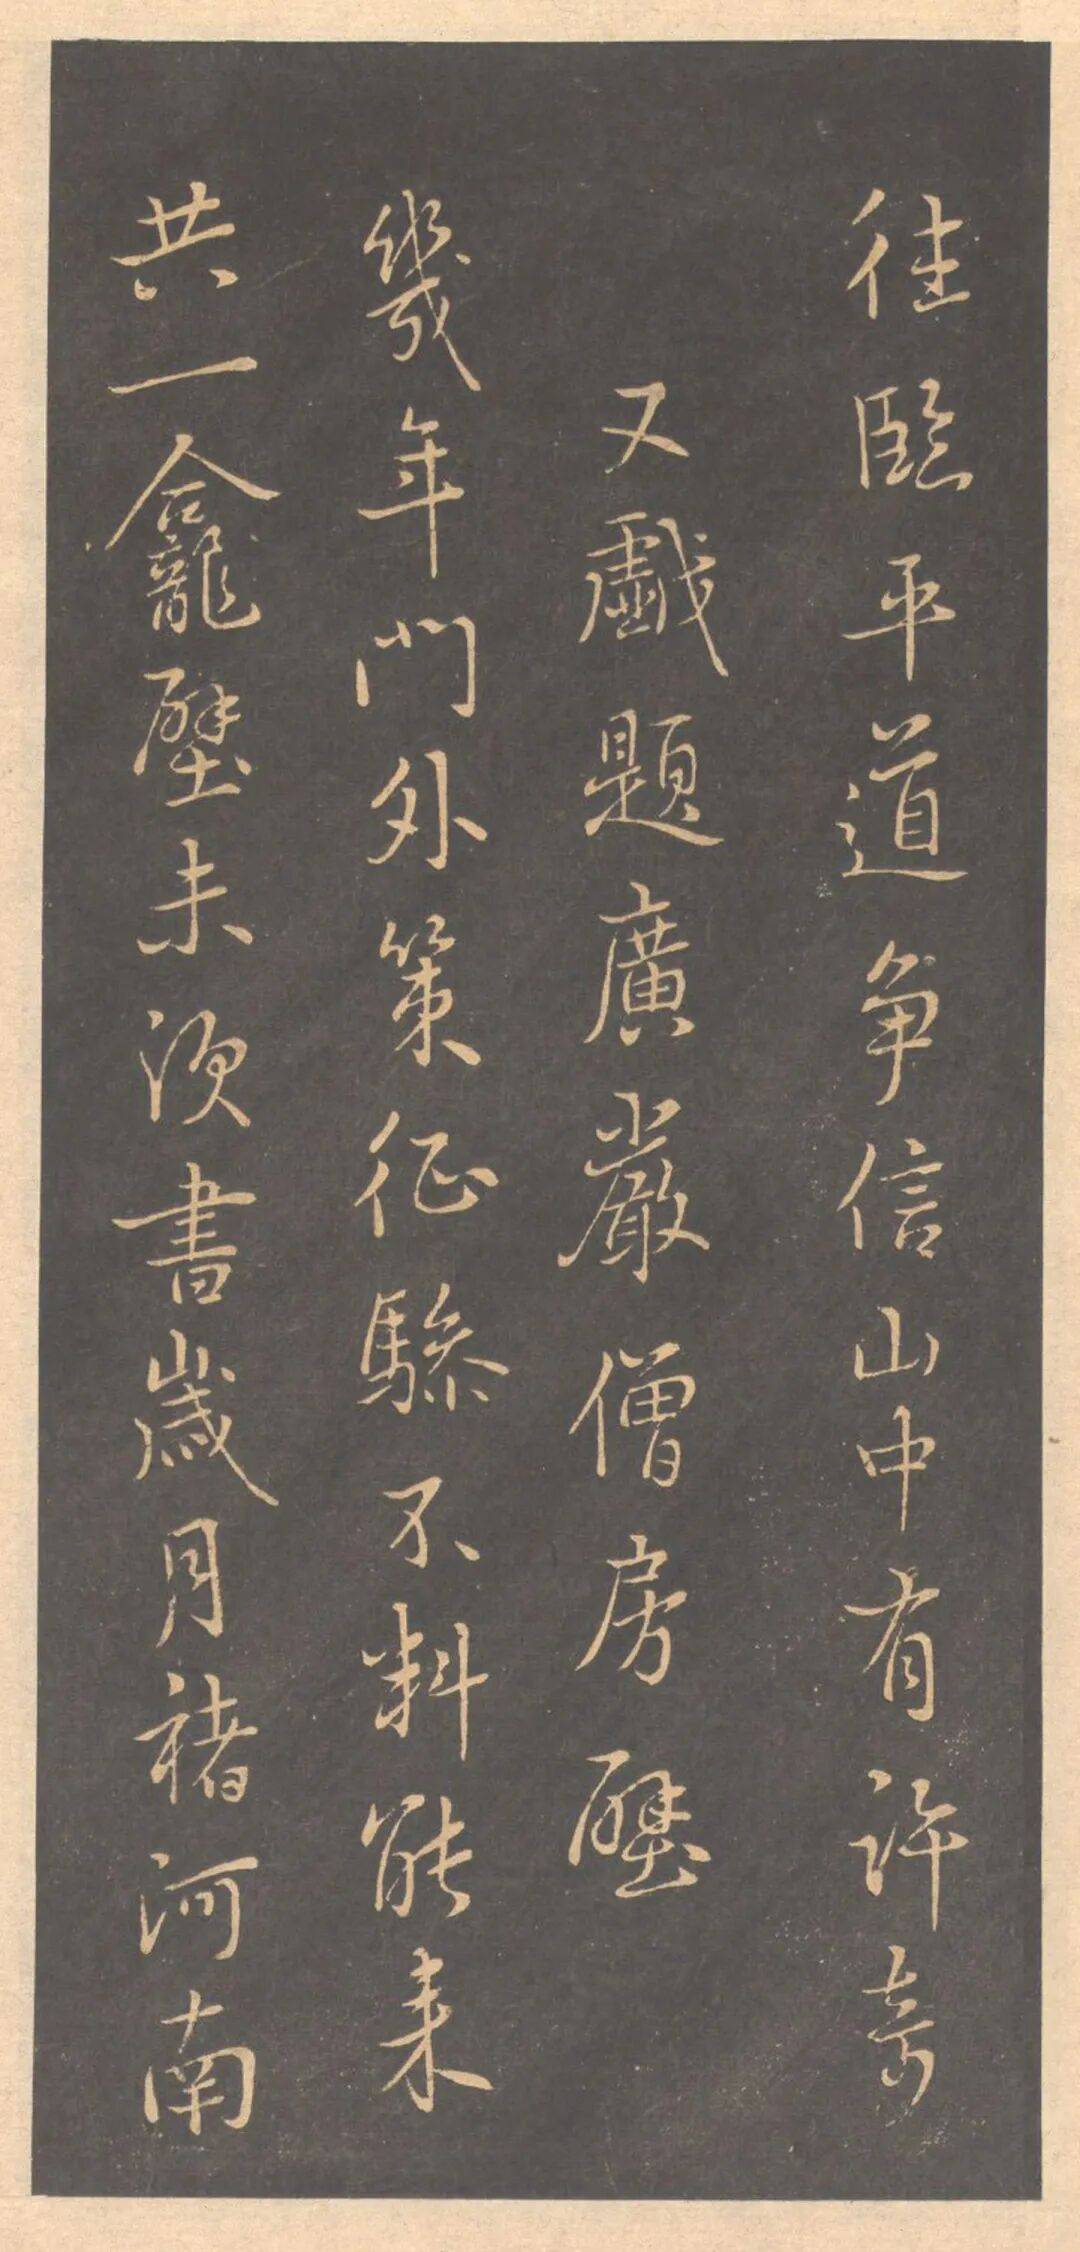 往臨平道爭信山中有許奇
又戲題廣嚴僧房壁
幾年門外策征驂不料能来
共一龕壁未須書歲月褚河南